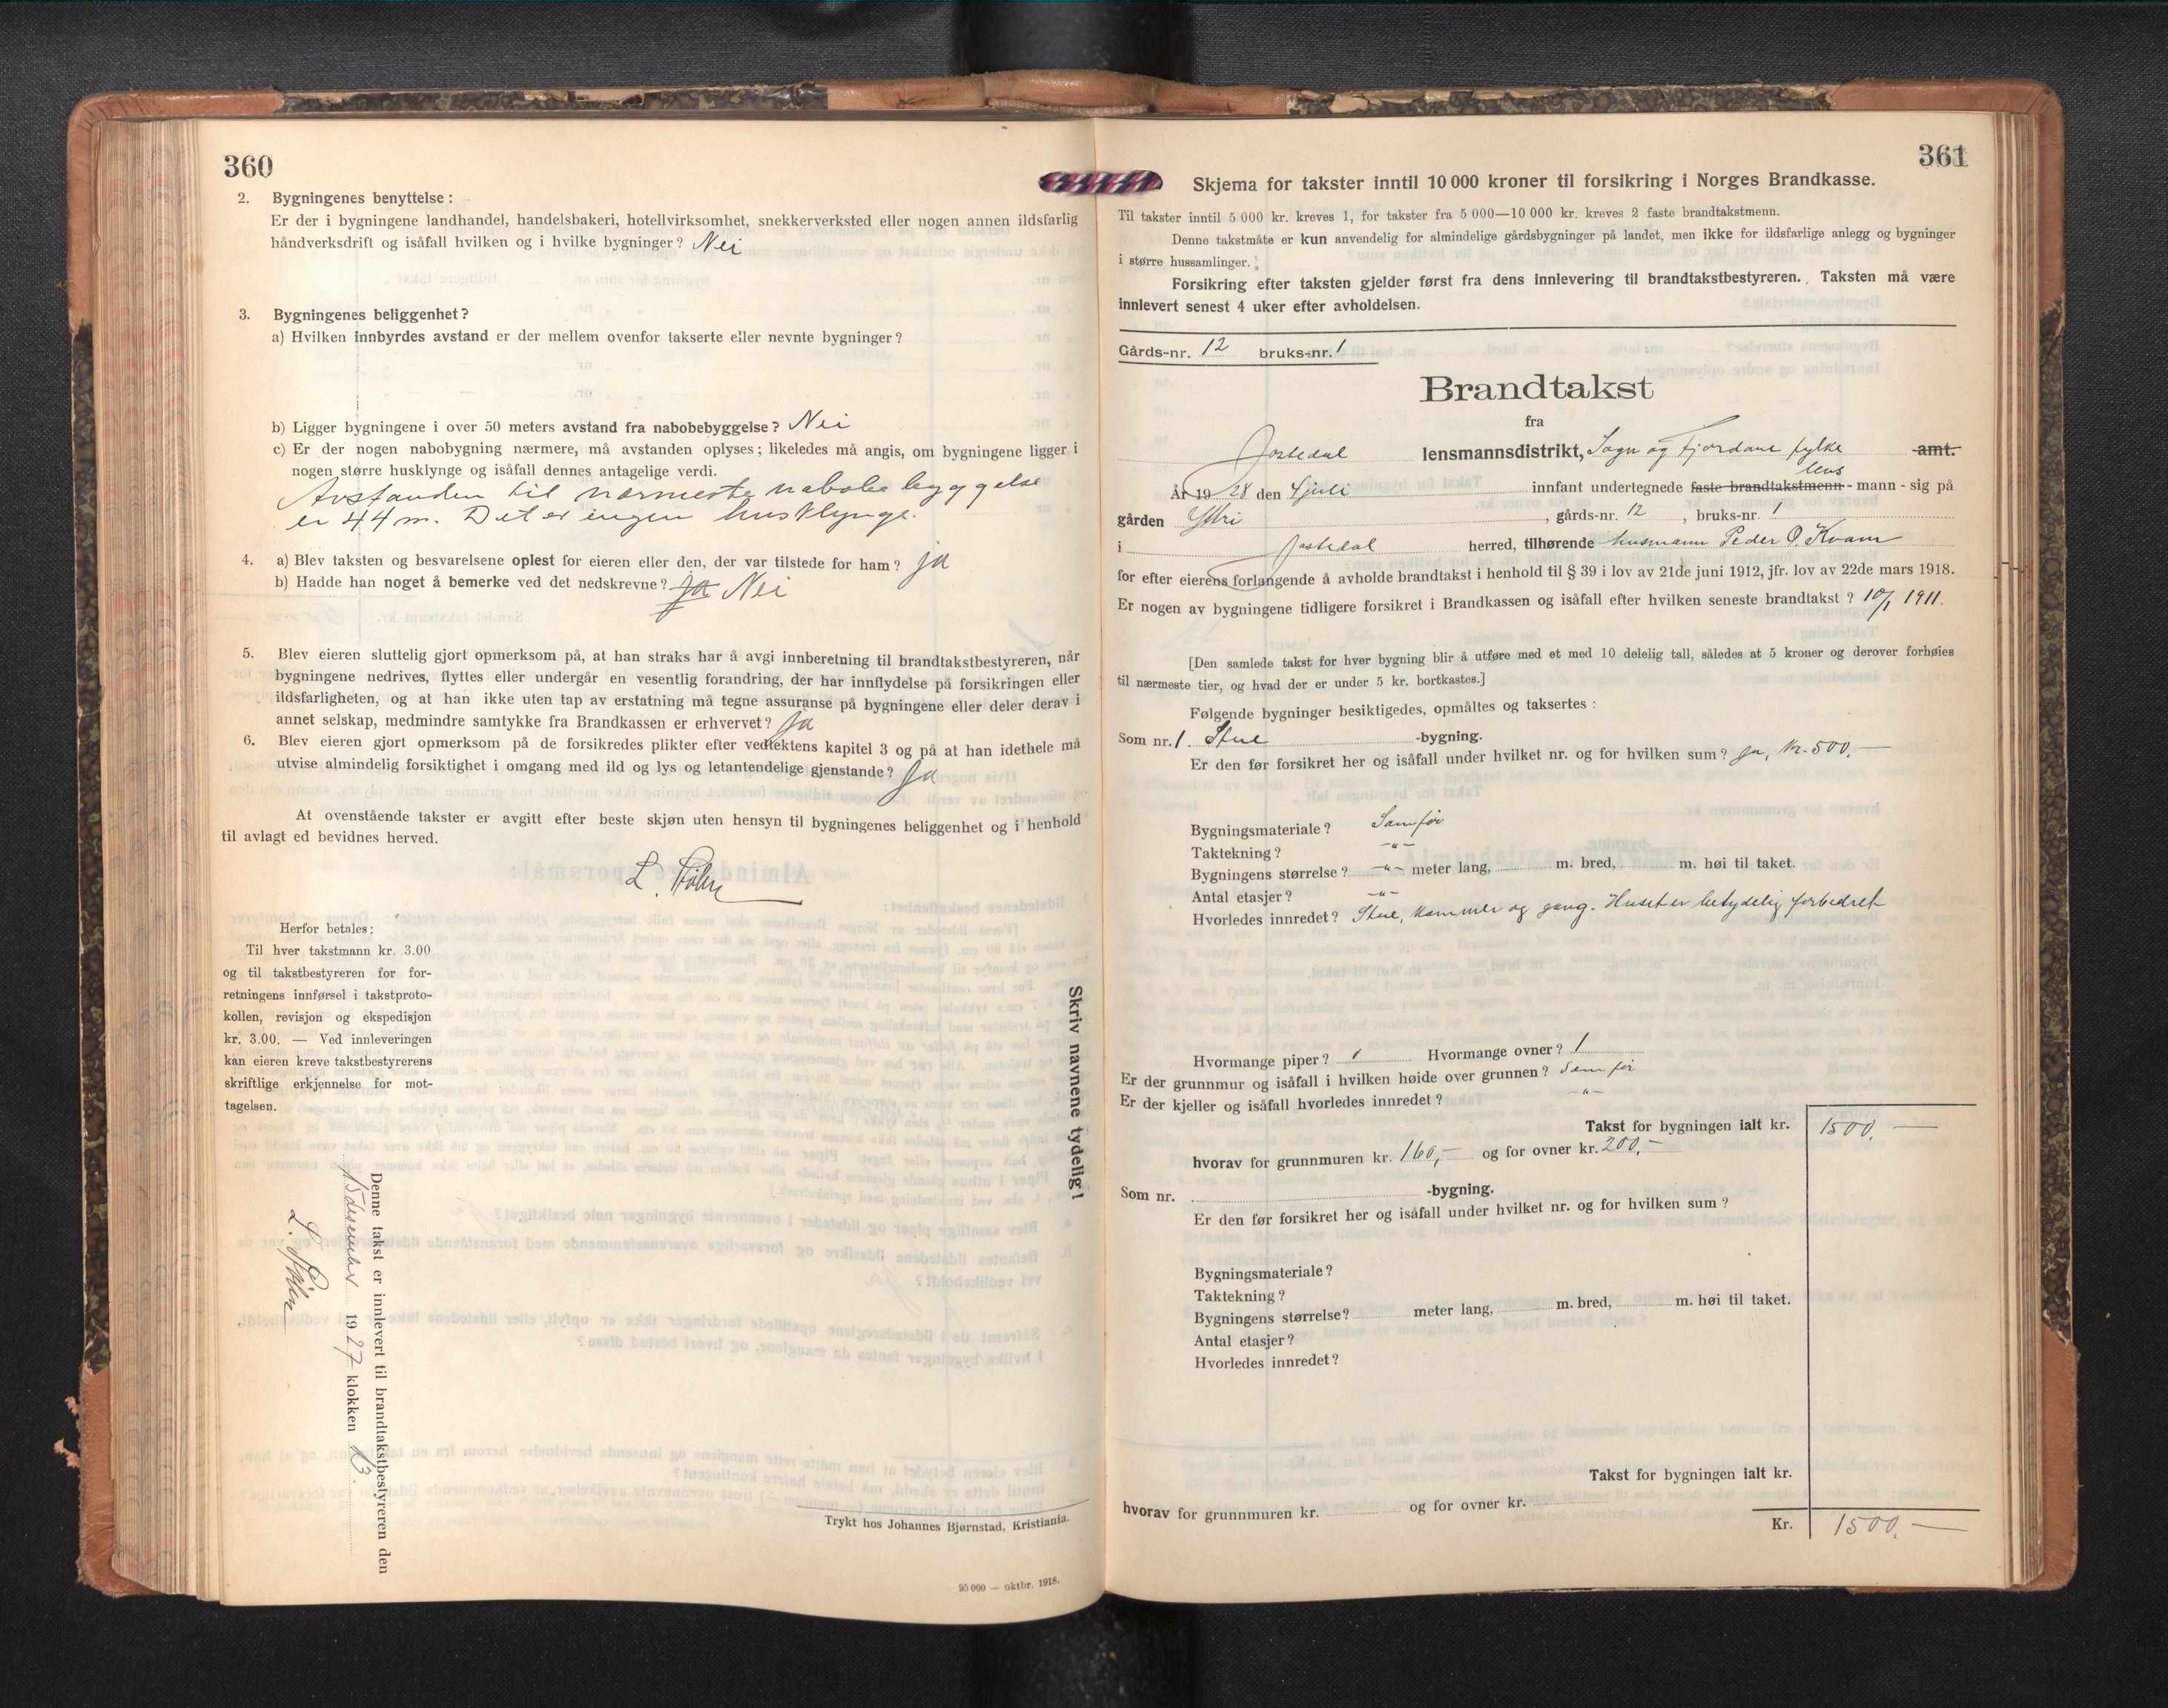 360
2. Bygningenes benyttelse :
Er der i bygningene landhandel, handelsbakeri, hotellvirksomhet, snekkerverksted eller nogen annen ildsfarlig
håndverksdrift og isåfall hvilken og i hvilke bygninger? Nei
3. Bygningenes beliggenhet?
a) Hvilken innbyrdes avstand er der mellem ovenfor takserte eller nevnte bygninger?
b) Ligger bygningene i over 50 meters avstand fra nabobebyggelse? Nei
c) Er der nogen nabobygning nærmere, må avstanden oplyses; likeledes må angis, om bygningene ligger i
nogen større husklynge og isåfall dennes antagelige verdi.
Avstanden til nærmeste nabobebyggelse
er 44 m. Det er ingen husklynge.
4. a) Blev taksten og besvarelsene oplest for eieren eller den, der var tilstede for ham? ja
b) Hadde han noget å bemerke ved det nedskrevne? ja Nei
5. Blev eieren sluttelig gjort opmerksom på, at han straks har å avgi innberetning til brandtakstbestyreren, når
bygningene nedrives, flyttes eller undergår en vesentlig forandring, der har innflydelse på forsikringen eller
ildsfarligheten, og at han ikke uten tap av erstatning må tegne assuranse på bygningene eller deler derav i
annet selskap, medmindre samtykke fra Brandkassen er erhvervet? ja
6. Blev eieren gjort opmerksom på de forsikredes plikter efter vedtektens kapitel 3 og på at han idethele må
utvise almindelig forsiktighet i omgang med ild og lys og letantendelige gjenstande? Ja
At ovenstående takster er avgitt efter beste skjøn uten hensyn til bygningenes beliggenhet og i henhold
til avlagt ed bevidnes herved.
L.
Herfor betales:
Til hver takstmann kr. 3.00
og til takstbestyreren for for-
retningens innførsel i takstproto-
kollen, revisjon og ekspedisjon
kr. 3.00. — Ved innleveringen
kan eieren kreve takstbestyrerens
skriftlige erkjennelse for mot-
tagelsen.
Skriv navnene tydelig!
Denne takst er innlevert til brandtakstbestyreren den
15 desember 1927 klokken 13.
L.
Trykt hos Johannes Bjørnstad, Kristiania.
95 000 — oktbr. 1918.
361
Skjema for takster inntil 10 000 kroner til forsikring i Norges Brandkasse.
Til takster inntil 5 000 kr. kreves 1, for takster fra 5 000—10 000 kr. kreves 2 faste brandtakstmenn.
Denne takstmåte er kun anvendelig for almindelige gårdsbygninger på landet, men ikke for ildsfarlige anlegg og bygninger
i større hussamlinger.
Forsikring efter taksten gjelder først fra dens innlevering til brandtakstbestyreren. Taksten må være
innlevert senest 4 uker efter avholdelsen.
Gårds-nr. 12 bruks-nr. 1
Brandtakst
fra
Jostedal lensmannsdistrikt, Sogn og Fjordane fylke amt.
lens
År 1928 den 4 juli innfant undertegnede faste brandtakstmenn - mann - sig på
gården Yttri, gårds-nr. 12, bruks-nr. 1
i Jostedal herred, tilhørende husmann Peder O. Kvam
for efter eierens forlangende å avholde brandtakst i henhold til § 39 i lov av 21de juni 1912, jfr. lov av 22de mars 1918.
Er nogen av bygningene tidligere forsikret i Brandkassen og isåfall efter hvilken seneste brandtakst ? 10/1 1911.
[Den samlede takst for hver bygning blir å utføre med et med 10 delelig tall, således at 5 kroner og derover forhøies
til nærmeste tier, og hvad der er under 5 kr. bortkastes.]
Følgende bygninger besiktigedes, opmåltes og taksertes :
Som nr. 1 Stue -bygning.
Er den før forsikret her og isåfall under hvilket nr. og for hvilken sum? ja, kr. 500,—
Bygningsmateriale? Som før
Taktekning? -"-
Bygningens størrelse? -"- meter lang, m. bred, m. høi til taket.
Antal etasjer? -"-
Hvorledes innredet? Stue, kammer og gang. Huset er betydelig forbedret
Hvormange piper? 1 Hvormange ovner? 1
Er der grunnmur og isåfall i hvilken høide over grunnen? Som før
Er der kjeller og isåfall hvorledes innredet? -"-
Takst for bygningen ialt kr. 1500,—
hvorav for grunnmuren kr. 160,— og for ovner kr. 200,—
Som nr. -bygning.
Er den før forsikret her og isåfall under hvilket nr. og for hvilken sum ?
Bygningsmateriale?
Taktekning?
Bygningens størrelse? meter lang, m. bred, m. høi til taket.
Antal etasjer?
Hvorledes innredet?
Takst for bygningen ialt kr.
hvorav for grunnmuren kr. og for ovner kr.
Kr. 1500,—